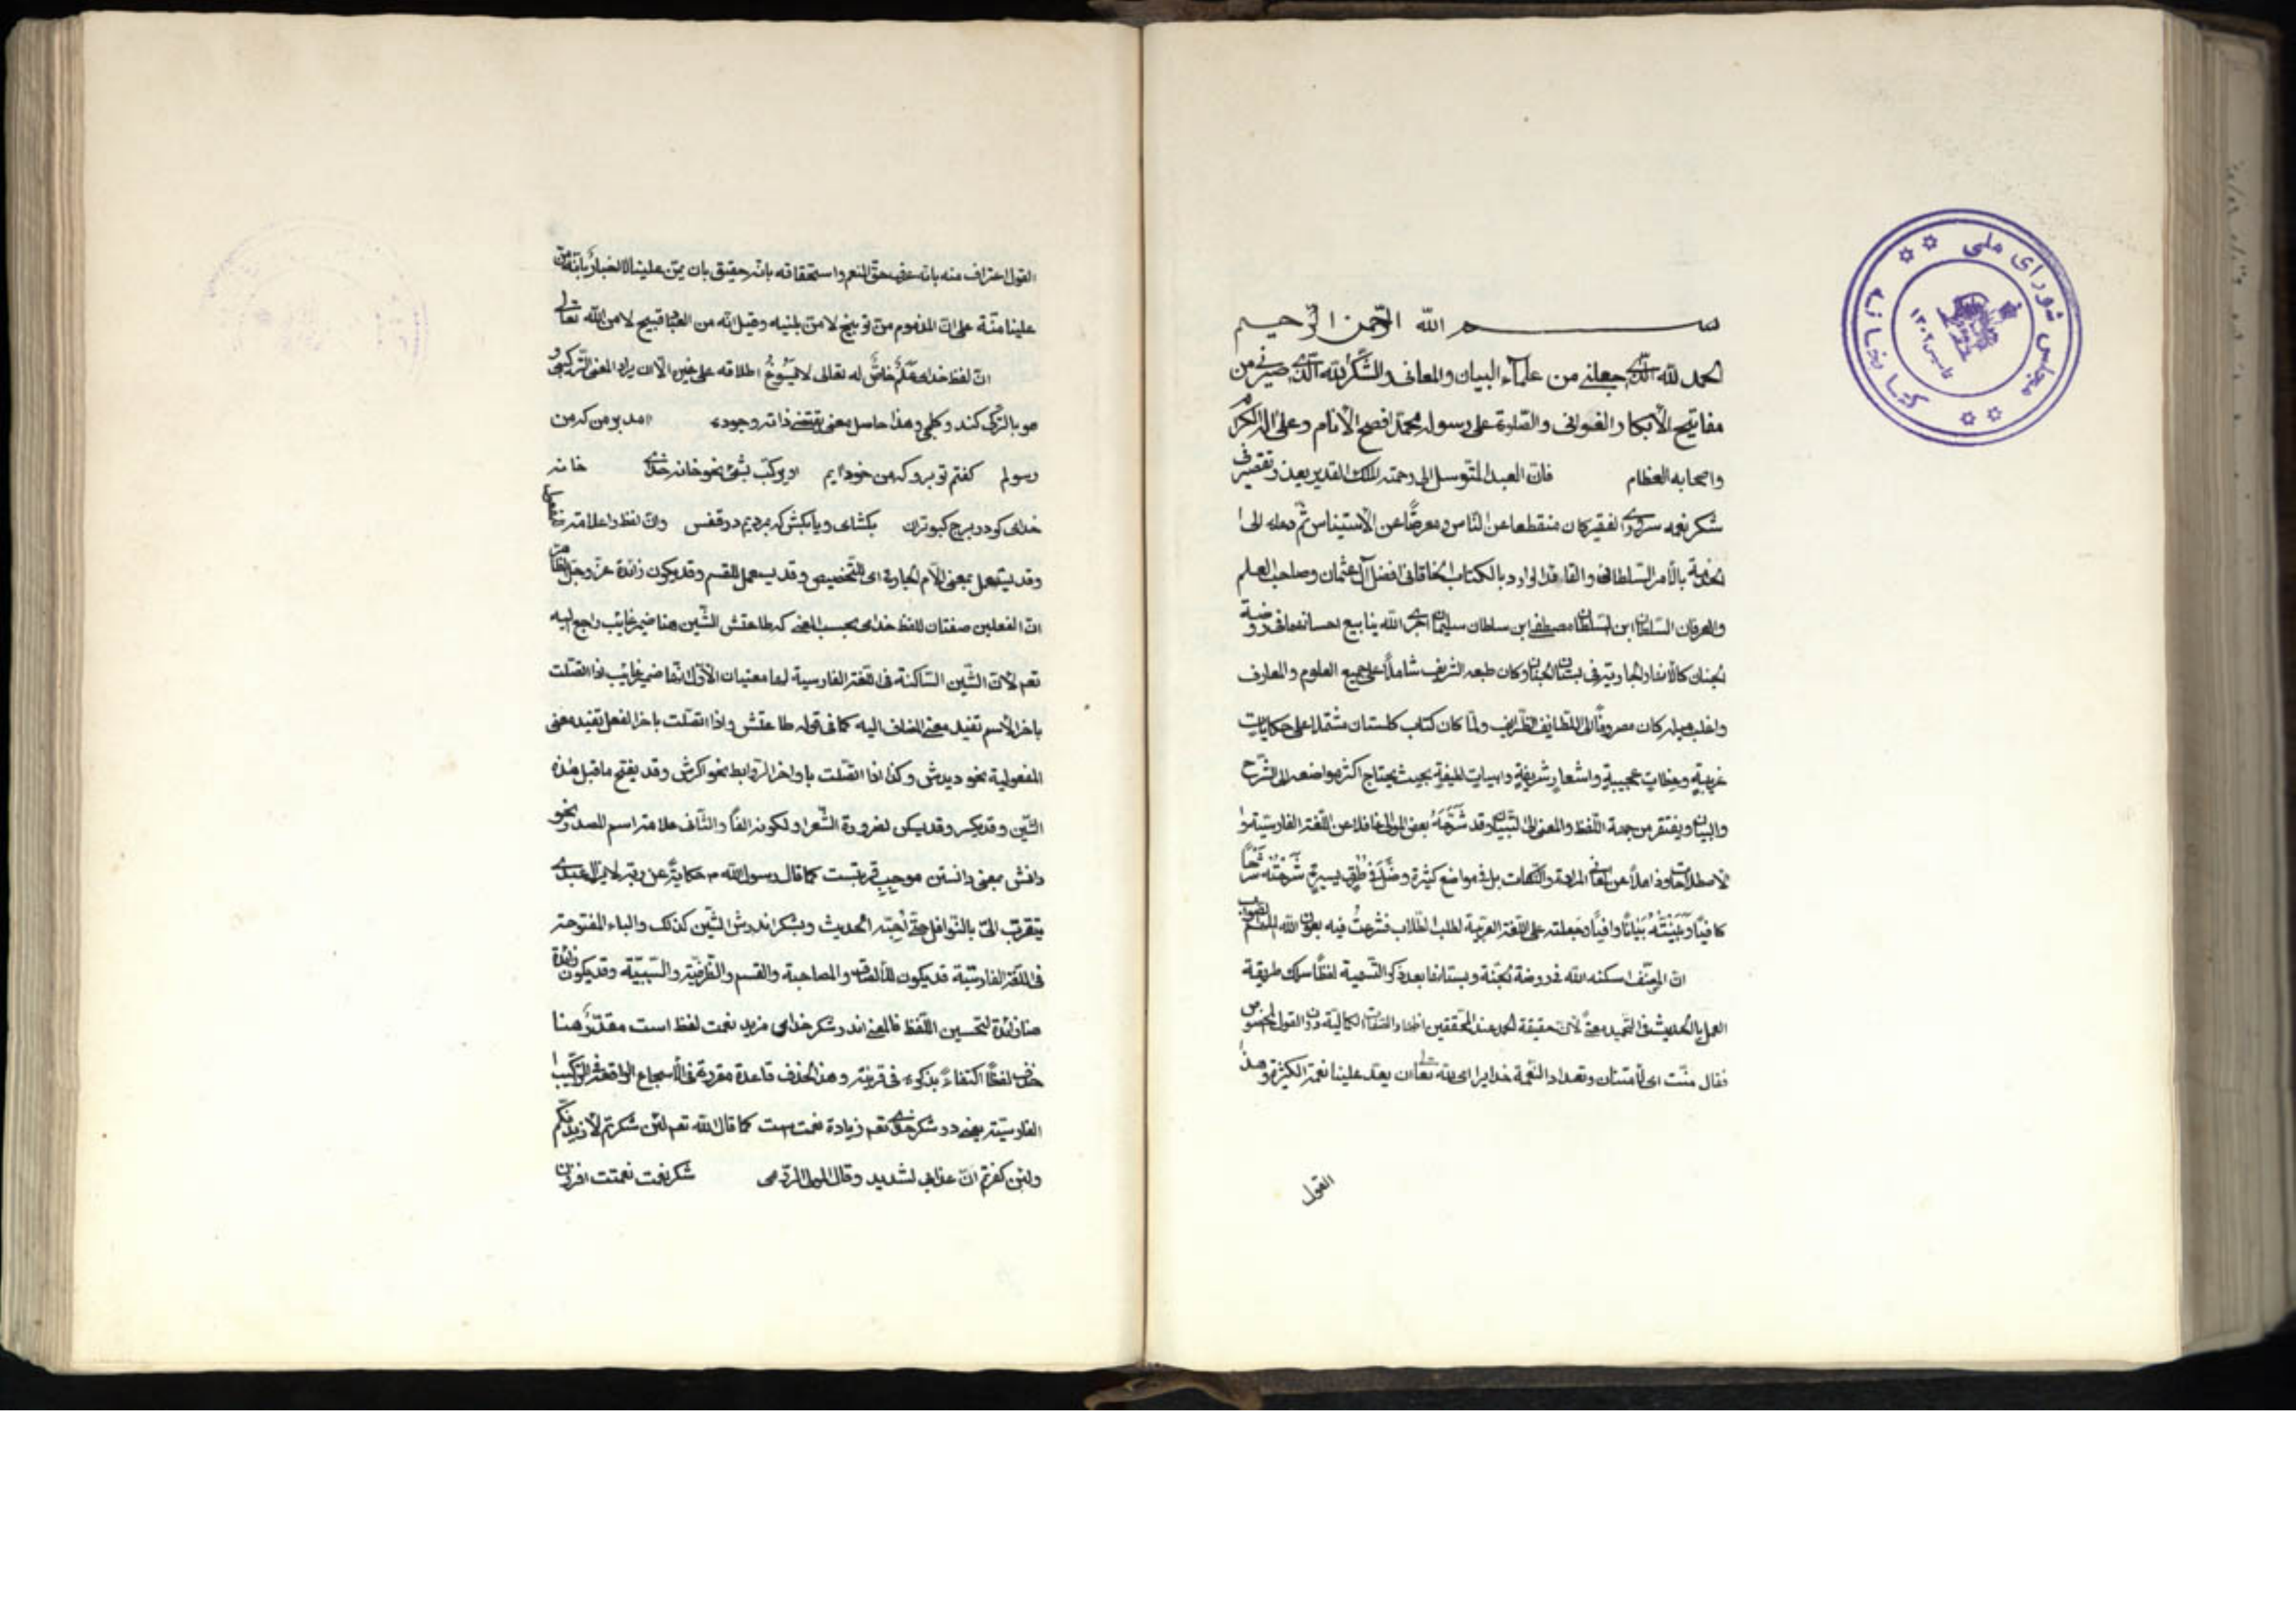 بسم الله الرحمن الرحيم
الحمد لله الذى جعلنے من علمآء البيان والمعانى والشكر لله الذى صيرنے من
مفاتيح الأبكار والغوانى والصلوة على رسوله محمد افصح الأنام وعلى آله الكرام
واصحابه العظام فان العبد المتوسل الى رحمة الملك القدير بعذر وتقصير فى
شكر نعمه سرورى الفقير كان منقطعا عن الناس ومعرضًا عن الأستيناس ثم دعاه الى
الخدمة بالأمر السلطانى والقا الوارد بالكتاب الخاقانى افضل آل عثمان وصاحب العلم
والعرفان السلطان ابن السلطان مصطفى ابن سلطان سليمان اجرى الله ينابيع احسانه فى روضة
الجنان كالأنهار الجارية فى بستان الجنان وكان طبعه الشريف شاملاً على جميع العلوم والمعارف
واغلب ميله كان مصروفاً الى اللطايف الظرايف ولما كان كتاب كلستان مشتملا على حكايات
غريبةٍ وعظات عجيبيةٍ واشعارٍ شريفةٍ وابيات لطيفةٍ بحيث يحتاج اكثر مواضعه الى الشرح
والبيان ويفتقر من جهة اللفظ والمعنى الى التبيان وقد شَرَحَهُ بعض الموالى غافلا عن اللغة الفارسية
الأصطلاحات وذاهلاً عن معانى والنكات بل فى مواضع كثيرة وضَلَّ فى طرقٍ يسيرةٍ شَرَحْتُهُ شَرْحًا
كافياً وبَيَّنْتُهُ بَيَانًا وافياً وجعلته على اللغة العربية لطلب الطلاب فشرعتُ فيه بعون الله الملهم للصواب
ان المصنف اسكنه الله فى روضة الجنة وبستانها بعد ذكر التسمية لفظاً سلك طريقة
العمل بالحديث فى التحميد معنًى لأن حقيقة الحمد عند المحققين اظهار الصفات الكمالية دون القول المخصوص
فقال منّت اى الأمتنان وتعداد النعمة خدايرا اى لله تعالى ان يعد علينا نعمة الكثيرة وهذا
القول
القول اعتراف منه بانه عرف حق المنعم واستحقاقه بانه حقيق بان يمن علينا لا اخبار بانه من
علينا منّة على ان المذموم من توبيخ لا من وقيل انه من العباد قبيح لا من الله تعالى
ان لفظ خداى عَلَمٌ خاصٌّ له تعالى لا يسوغ اطلاقه على غيره الا ان يراد المعنى التركيبى و
هو بالتركى كند وكلمى وهذا حاصل معنى يقتضے ذاته وجوده آمد بر من كه من
رسولم كفتم تو برو كه من خود آيم او يركب بشئ نحو خانه خداى خانه
خداى كو در برج كبوتران بكشاى ويا بكش كه مرديم در قفس وان لفظ را علامة المفعول
وقد يستعمل بمعنى اللام الجارة اى للتخصيص وقد يستعمل للقسم وقد يكون زائدة عز وجل
ان الفعلين صفتان للفظ خداى بحسب المعنى كه طاعتش الشين هنا ضمير غايب راجع اليه
تعم لأن الشين الساكنة فى اللغة الفارسية لها معنيان الأول انها ضمير غايب فاذا اتصلت
باخر الأسم تفيد معنى المضاف اليه كما فى قوله طاعتش واذا اتصلت باخر الفعل تفيد معنى
المفعولية نحو ديدش وكذا اذا اتصلت باواخر الروابط نحو اكرش وقد يفتح ما قبل هذه
الشين وقد يكسر وقد يسكن لضرورة الشعر او لكونه الفاً والثانى علامة اسم المصدر نحو
دانش بمعنى دانستن موجب قربتست كما قال رسول الله م حكايةً عن ربه لا يزال عبدى
يتقرب الىّ بالنوافل حتى احبه الحديث وبشكر اندرش الشين كذلك والباء المفتوحة
فى اللغة الفارسية قد يكون للألصاق والمصاحبة والقسم والظرفية والسببية وقد يكون زائدة
هنا زائدة لتحسين اللفظ فالمعنى اندر شكر خداى مزيد نعمت لفظ است مقدّرٌ هنا
حذف لفظاً اكتفاءً بذكره فى قرينه وهذا الحذف قاعدة مقررة فى الأسجاع الواقعة فى التركيب
الفارسية يعنى در شكر خداى تعم زيادة نعمت هست كما قال الله تعم لئن شكرتم لأزيدنكم
ولئن كفرتم ان عذابى لشديد وقال المولى الرومى شكر نعمت نعمتت افزون
مجلس شوراى ملى
كتابخانه
تاسيس ١٣٠٢